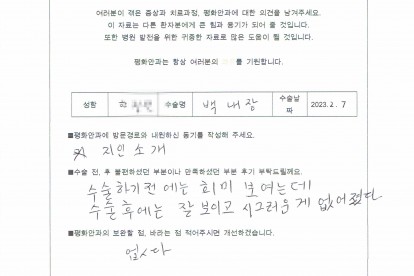 여러분이 겪은 증상과 치료과정, 평화안과에 대한 의견을 남겨주세요.
이 자료는 다른 환자분에게 큰 힘과 용기가 되어 줄 것입니다.
또한 병원 발전을 위한 귀중한 자료로 많은 도움이 될 것입니다.
평화안과는 항상 여러분의 을 기원합니다.
성함 수술명 백내장 수술날짜 2023.2.7
■평화안과에 방문경로와 내원하신 동기를 작성해 주세요.
지인 소개
■수술 전, 후 불편하셨던 부분이나 만족하셨던 부분 후기 부탁드릴께요.
수술하기전에는 희미 보여는데
수술후에는 잘 보이고 시그러움 게 없어졌다
■평화안과의 보완할 점, 바라는 점 적어주시면 개선하겠습니다.
업시다